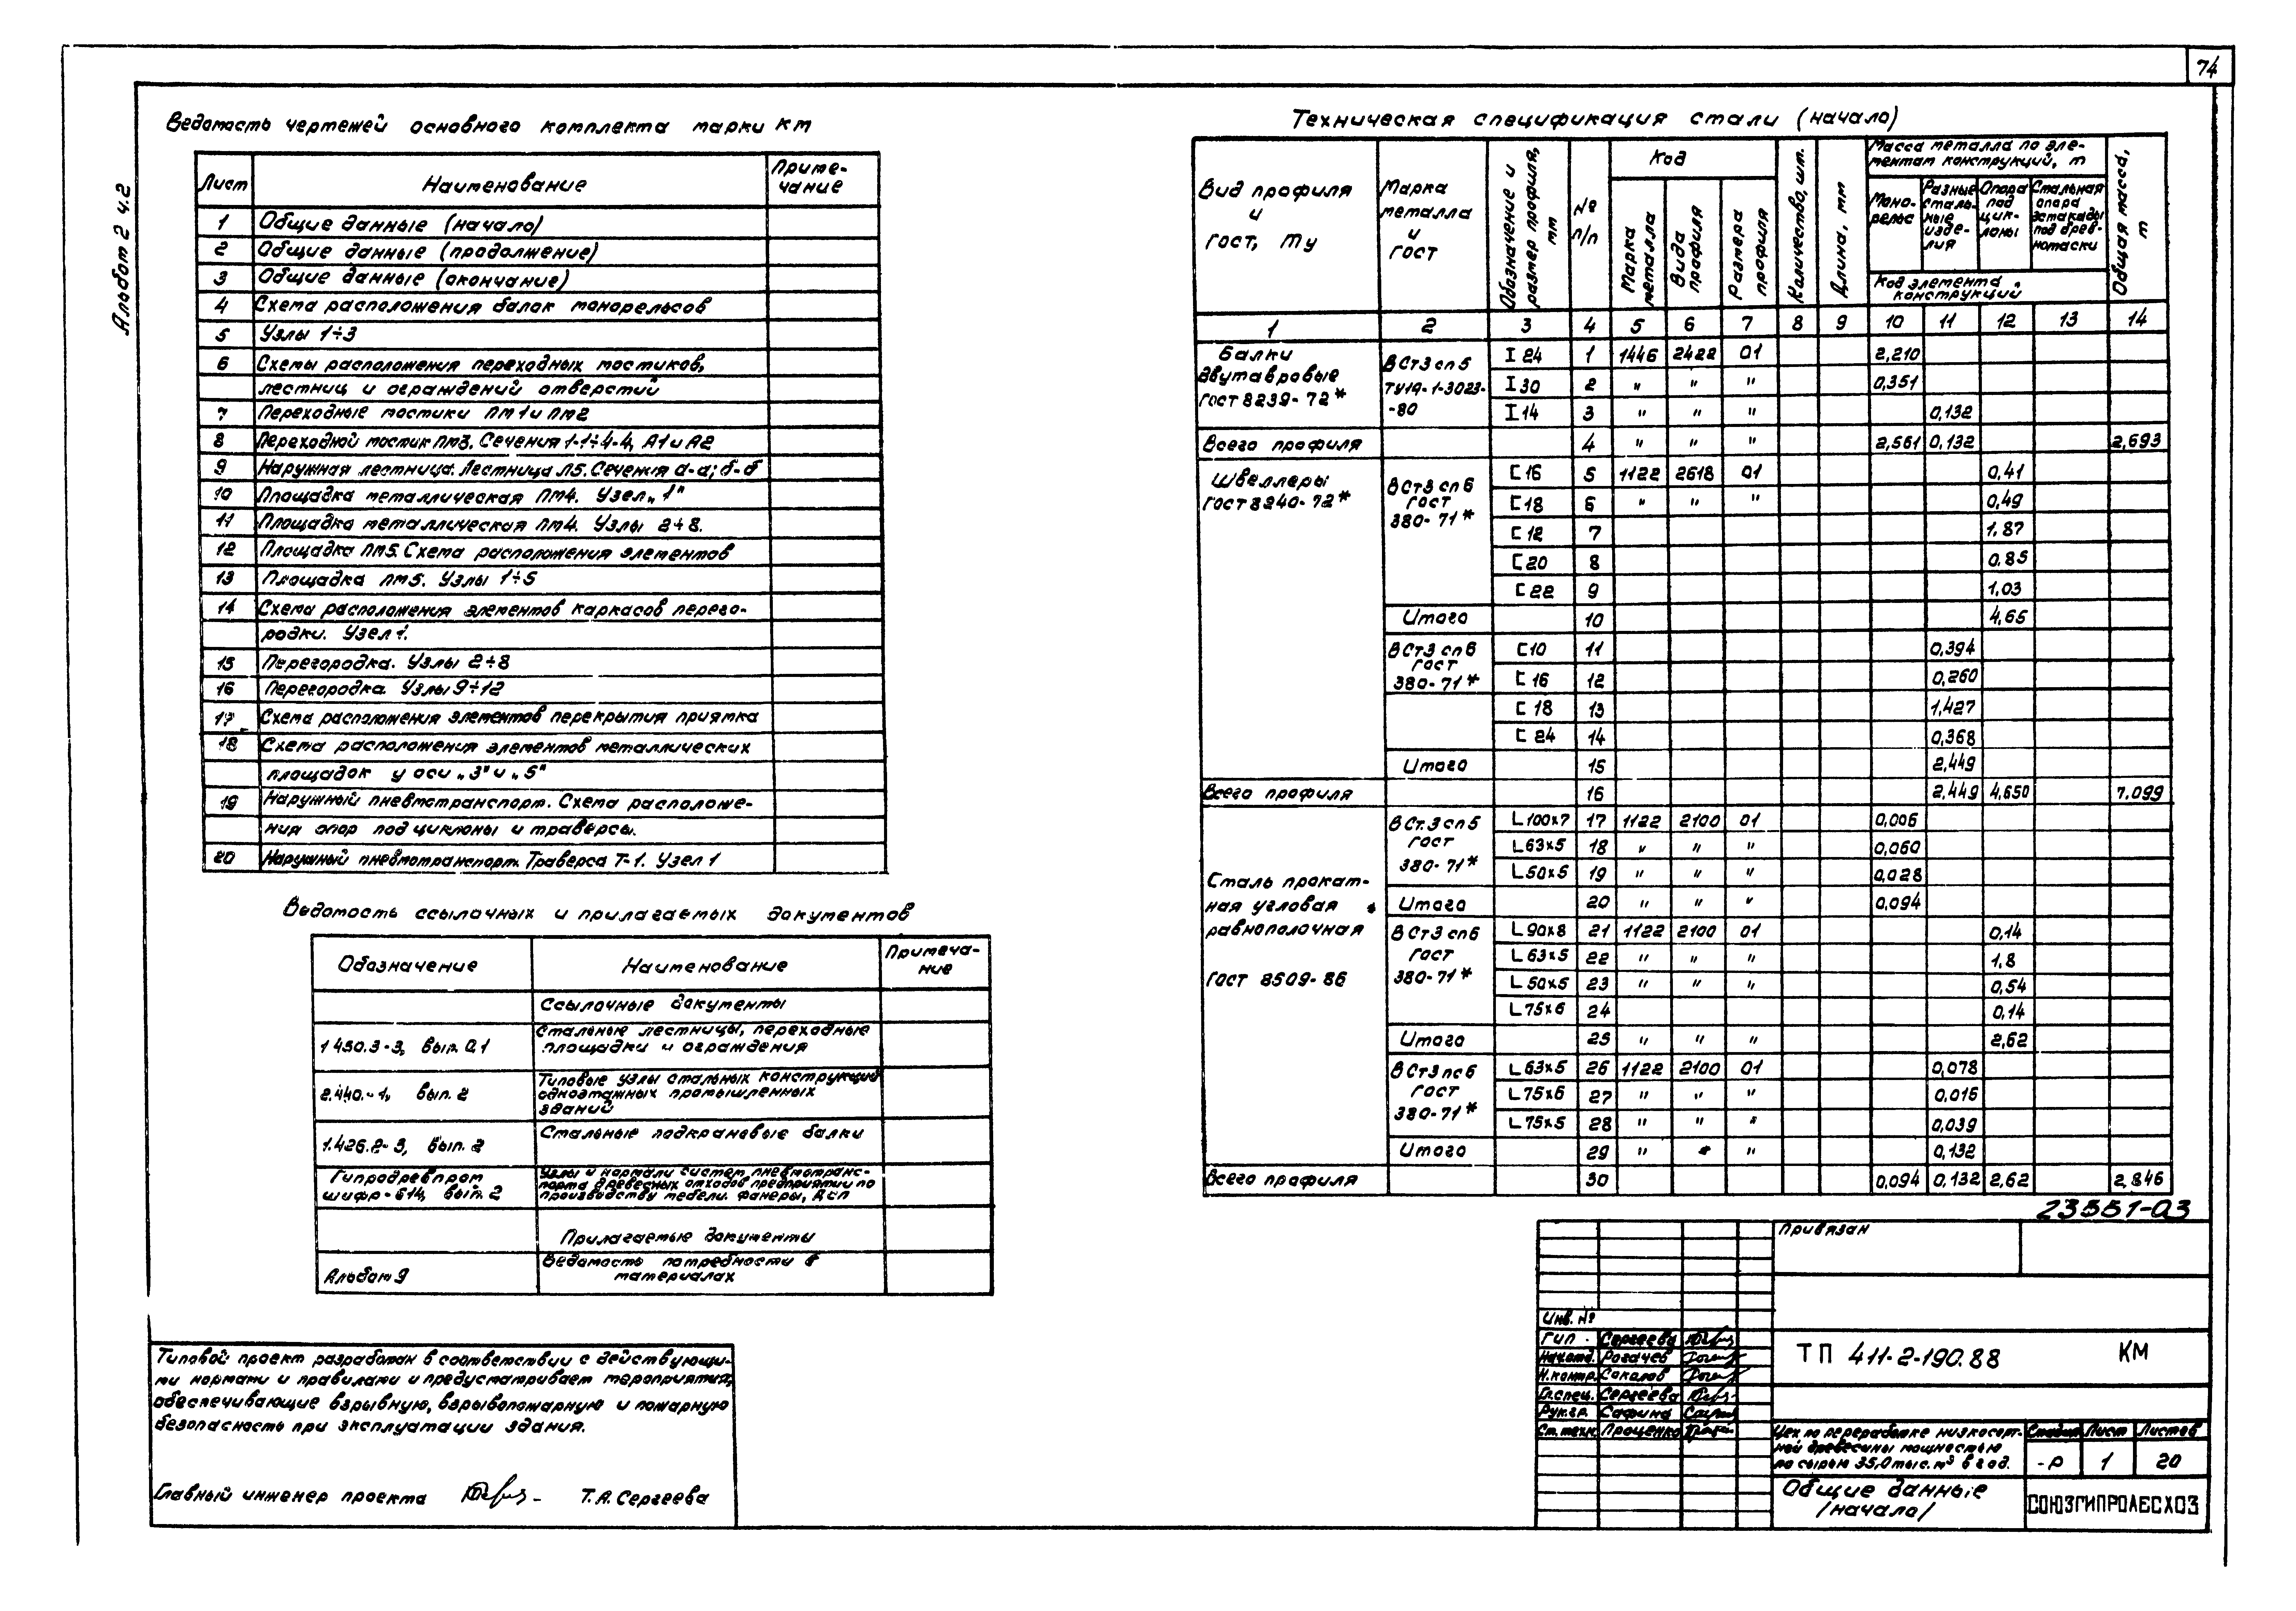 74
Альбом 2 ч.2
Ведомость чертежей основного комплекта марки КМ
Лист Наименование Приме-
чание
1 Общие данные (начало)
2 Общие данные (продолжение)
3 Общие данные (окончание)
4 Схема расположения балок монорельсов
5 Узлы 1÷3
6 Схемы расположения переходных мостиков,
лестниц и ограждений отверстий
7 Переходные мостики ПМ1 и ПМ2
8 Переходной мостик ПМ3. Сечения 1-1÷4-4, А1 и А2
9 Наружная лестница. Лестница Л5. Сечения а-а; б-б
10 Площадка металлическая ПМ4. Узел „1"
11 Площадка металлическая ПМ4. Узлы 2÷8.
12 Площадка ПМ5. Схема расположения элементов
13 Площадка ПМ5. Узлы 1÷5
14 Схема расположения элементов каркасов перего-
родки. Узел 1.
15 Перегородка. Узлы 2÷8
16 Перегородка. Узлы 9÷12
17 Схема расположения элементов перекрытия приямка
18 Схема расположения элементов металлических
площадок у оси „3" и „5"
19 Наружный пневмотранспорт. Схема расположе-
ния опор под циклоны и траверсы.
20 Наружный пневмотранспорт. Траверса Т-1. Узел 1
Ведомость ссылочных и прилагаемых документов
Обозначение Наименование Примеча-
ние
Ссылочные документы
1.450.3-3, вып. 0,1 Стальные лестницы, переходные
площадки и ограждения
2.440.-1, вып. 2 Типовые узлы стальных конструкций
одноэтажных промышленных
зданий
1.426.2-3, вып. 2 Стальные подкрановые балки
Гипродревпром
шифр-614, вып. 2 Узлы и нормали систем пневмотранс-
порта древесных отходов предприятий по
производству мебели, фанеры, ДСП
Прилагаемые документы
Альбом 9 Ведомость потребности в
материалах
Типовой проект разработан в соответствии с действующи-
ми нормами и правилами и предусматривает мероприятия,
обеспечивающие взрывную, взрывопожарную и пожарную
безопасность при эксплуатации здания.
Главный инженер проекта Т.А. Сергеева
Техническая спецификация стали (начало)
Вид профиля
и
ГОСТ, ТУ
Марка
металла
и
ГОСТ
Обозначение и
размер профиля,
мм
№
п/п
Код
Марка
металла
Вида
профиля
Размера
профиля
Количество, шт.
Длина, мм
Масса металла по эле-
ментам конструкций, т
Моно-
рельс
Разные
сталь-
ные
изде-
лия
Опора
под
цик-
лоны
Стальная
опора
эстакады
под брев-
нотаски
Код элемента
конструкций
Общая масса,
т
1 2 3 4 5 6 7 8 9 10 11 12 13 14
Балки
двутавровые
ГОСТ 8239-72*
ВСт3сп5
ТУ14-1-3023-
-80
I 24 1 1446 2422 01 2,210
I 30 2 " " " 0,351
I 14 3 " " " 0,132
Всего профиля 4 " " " 2,561 0,132 2,693
Швеллеры
ГОСТ 8240-72*
ВСт3сп6
ГОСТ
380-71*
[ 16 5 1122 2618 01 0,41
[ 18 6 " " " 0,49
[ 12 7 1,87
[ 20 8 0,85
[ 22 9 1,03
Итого 10 4,65
ВСт3сп6
ГОСТ
380-71*
[ 10 11 0,394
[ 16 12 0,260
[ 18 13 1,427
[ 24 14 0,368
Итого 15 2,449
Всего профиля 16 2,449 4,650 7.099
Сталь прокат-
ная угловая
равнополочная
ГОСТ 8509-86
ВСт.3сп5
ГОСТ
380-71*
L 100х7 17 1122 2100 01 0,006
L 63х5 18 " " " 0,060
L 50х5 19 " " " 0,028
Итого 20 " " " 0,094
ВСт3сп6
ГОСТ
380-71*
L 90х8 21 1122 2100 01 0,14
L 63х5 22 " " " 1,8
L 50х5 23 " " " 0,54
L 75х6 24 0,14
Итого 25 " " " 2,62
ВСт3пс6
ГОСТ
380-71*
L 63х5 26 1122 2100 01 0,078
L 75х6 27 " " " 0,015
L 75х5 28 " " " 0,039
Итого 29 " " " 0,132
Всего профиля 30 0,094 0,132 2,62 2,846
23551-03
Привязан
Инв. №
ГИП Сергеева
Нач.отд. Рогачев
Н.контр. Соколов
Гл.спец. Сергеева
Рук.гр. Сафина
Ст.техн. Проценко
ТП 411-2-190.88 КМ
Цех по переработке низкосорт-
ной древесины мощностью
по сырью 35,0 тыс. м³ в год.
Стадия Лист Листов
-Р 1 20
Общие данные
/начало/
СОЮЗГИПРОЛЕСХОЗ